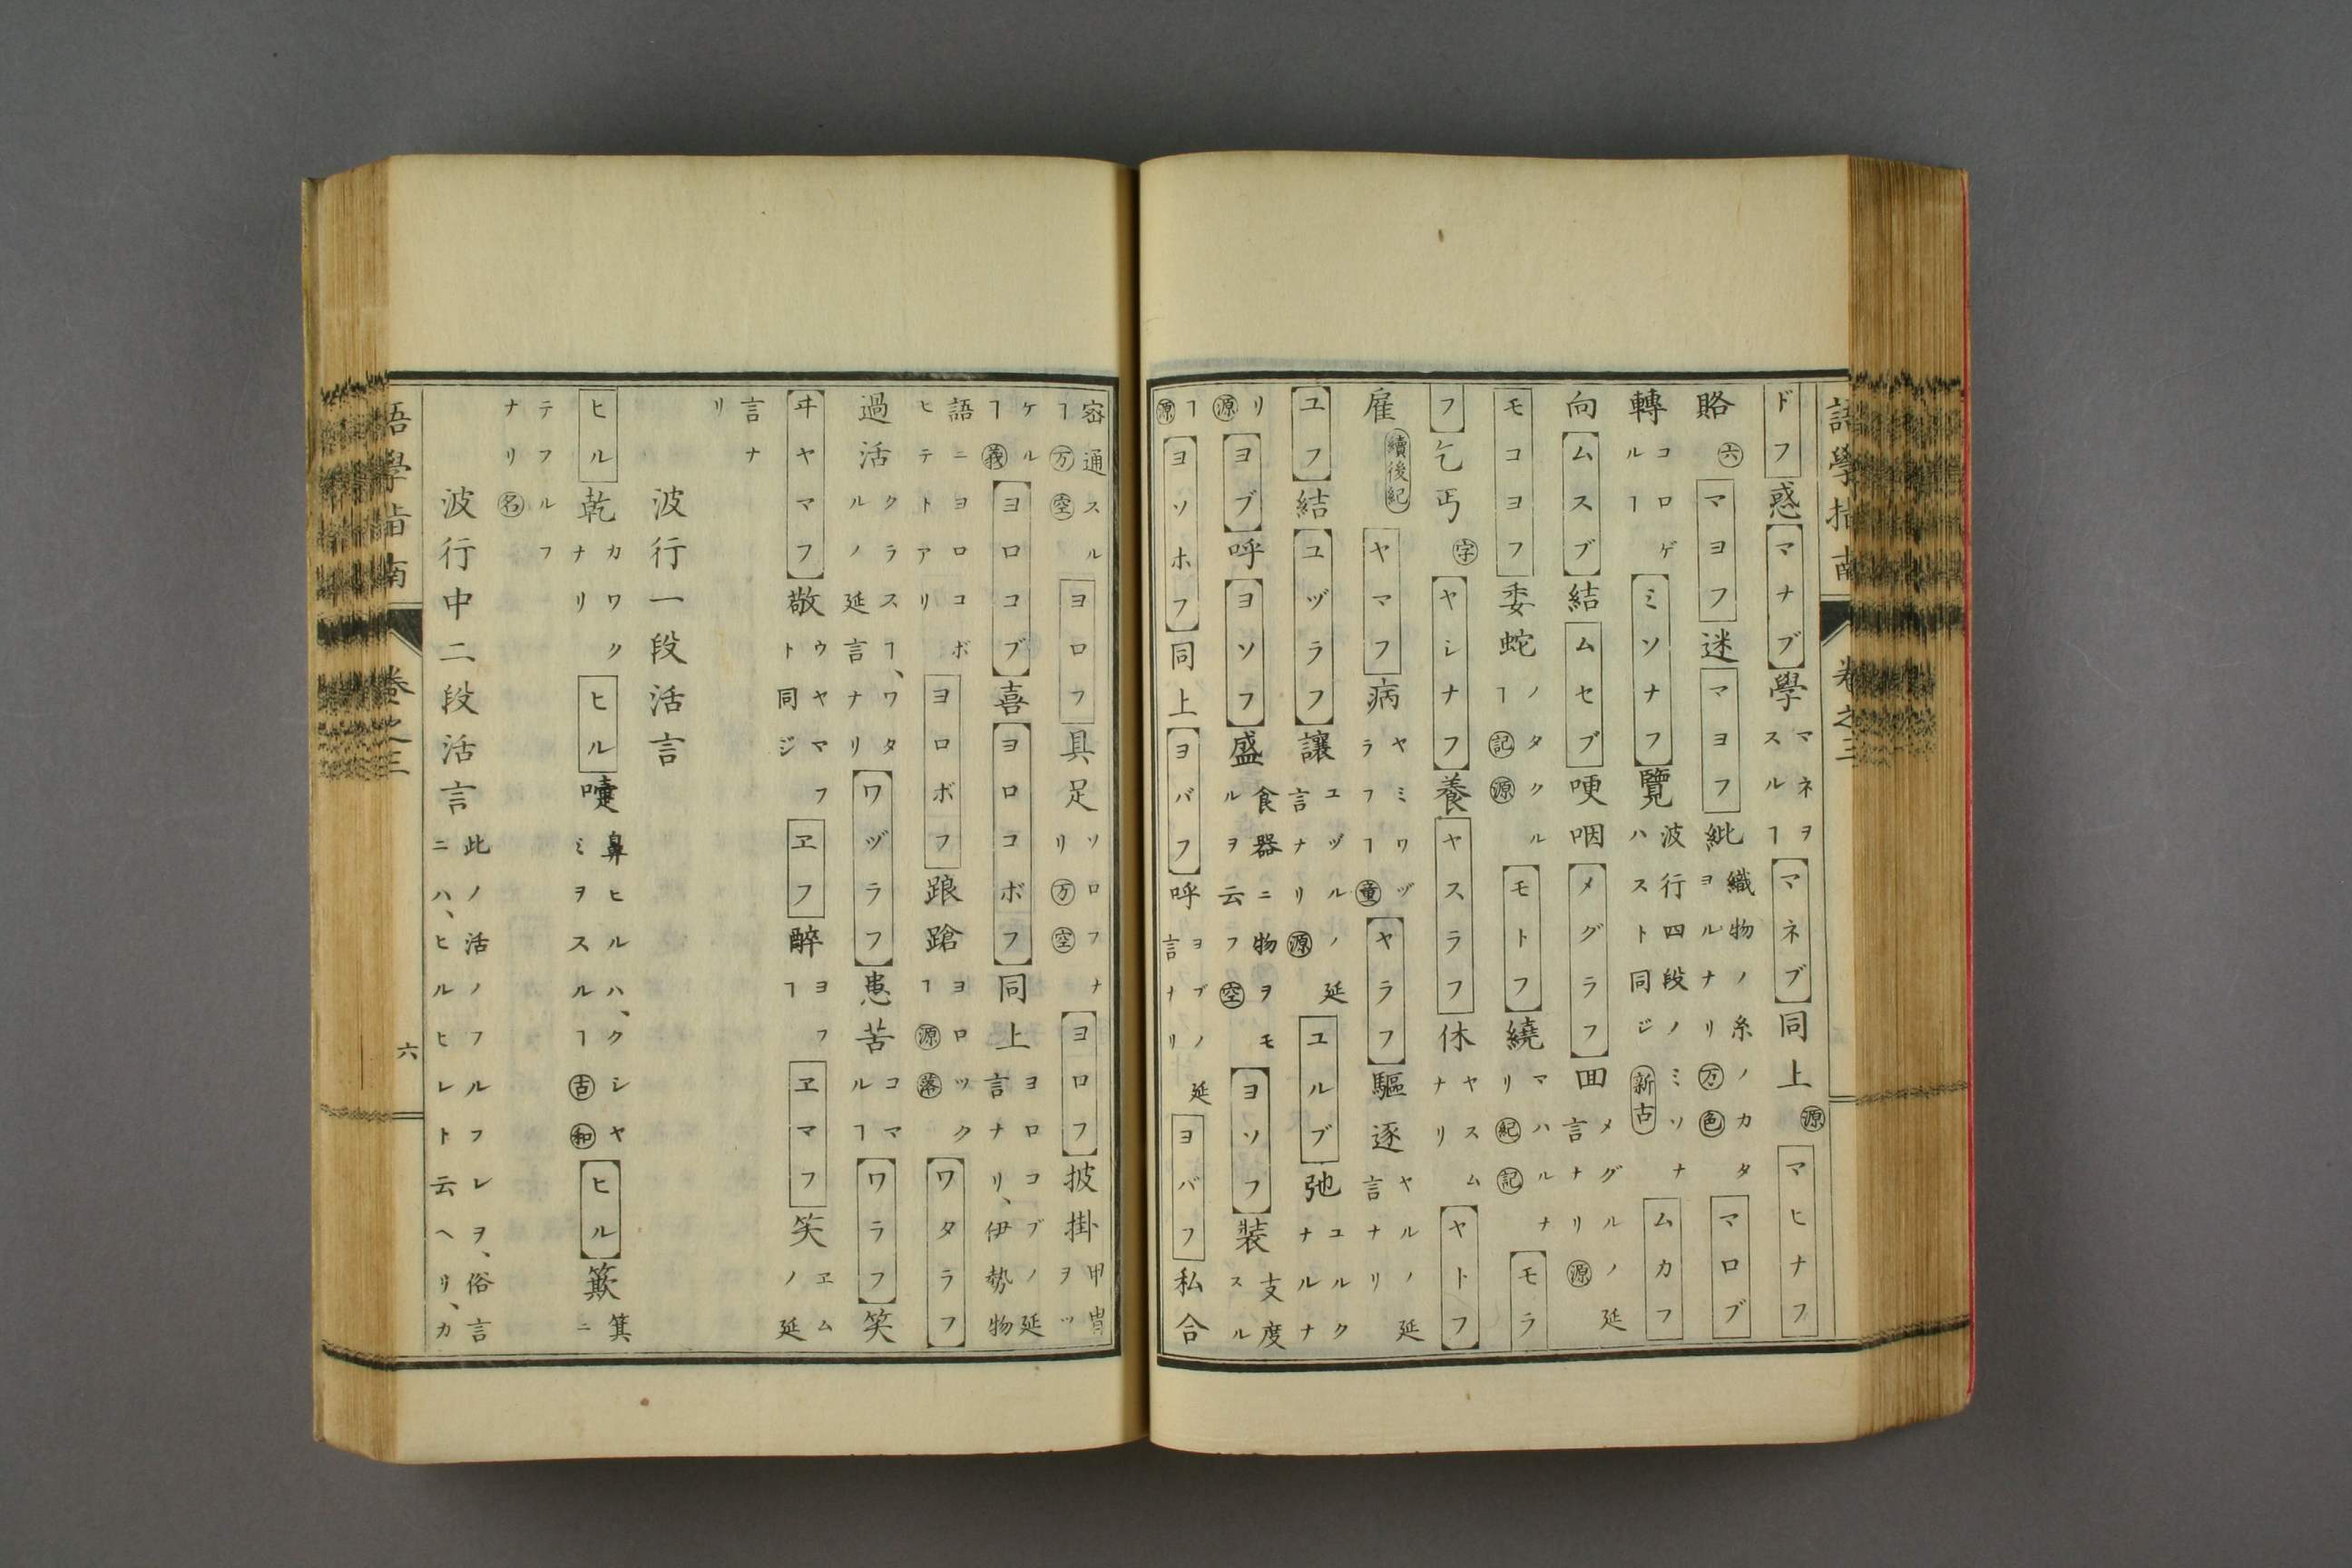 語學指南 卷之三
ドフ惑マナブ學マネヲスルヿマネブ同上源マヒナフ
賂六マヨフ迷マヨフ紕織物ノ糸ノカタヨルナリ万色マロブ
轉コロゲルヿミソナフ覽波行四段ノミソナハスト同ジ新古ムカフ
向ムスブ結ムセブ哽咽メグラフ囬メグルノ延言ナリ源
モコヨフ委蛇ノタクルヿ記源モトフ繞マハルナリ紀記モラ
フ乞丐字ヤシナフ養ヤスラフ休ヤスムナリヤトフ
雇續後紀ヤマフ病ヤミワヅラフヿ童ヤラフ驅逐ヤルノ延言ナリ
ユフ結ユヅラフ讓ユヅルノ延言ナリ源ユルブ弛ユルクナルナ
リ源ヨブ呼ヨソフ盛食器ニ物ヲモルヲ云フ空ヨソフ装支度スル
ヿ源ヨソホフ同上ヨバフ呼ヨブノ延言ナリヨバフ私合
密通スルヿ万空ヨロフ具足ソロフナリ万空ヨロフ披掛甲冑ヲツ
ケルヿ義ヨロコブ喜ヨロコボフ同上ヨロコブノ延言ナリ、伊勢物
語ニヨロコボヒテトアリヨロボフ踉蹌ヨロツクヿ源落ワタラフ
過活クラスヿ、ワタルノ延言ナリワヅラフ患苦コマルヿワラフ笑
ヰヤマフ敬ウヤマフト同ジヱフ醉ヨフヿヱマフ笑ヱムノ延
言ナリ
波行一段活言
ヒル乾カワクナリヒル嚏鼻ヒルハ、クシヤミヲスルヿ古和ヒル簸箕ニ
テフルフナリ名
波行中二段活言此ノ活ノフルフレヲ、俗言ニハ、ヒルヒレト云ヘリ、カ
語學指南 卷之三 六